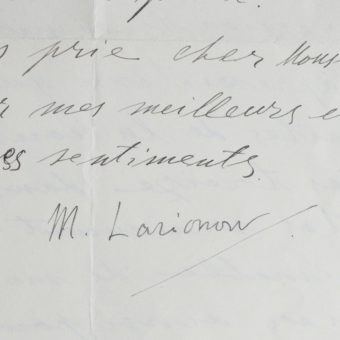 s prie cher Mons
r mes meilleurs e
es sentiments.
M. Larionow